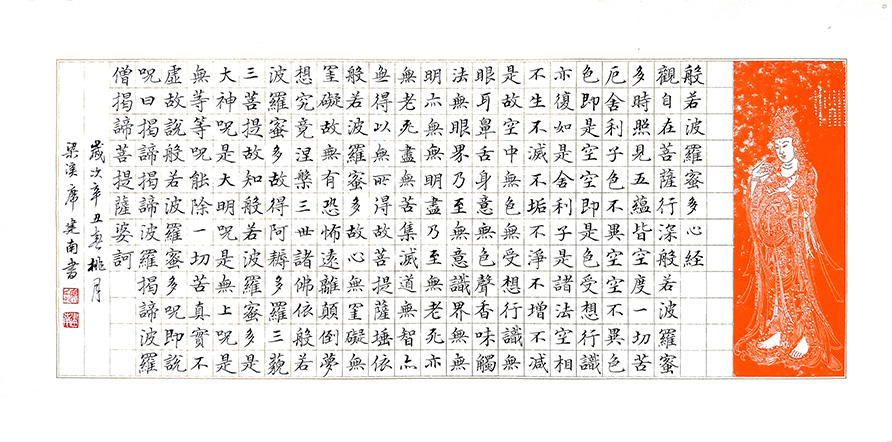 般若波羅蜜多心經
觀自在菩薩行深般若波羅蜜
多時照見五蘊皆空度一切苦
厄舍利子色不異空空不異色
色即是空空即是色受想行識
亦復如是舍利子是諸法空相
不生不滅不垢不淨不增不减
是故空中無色無受想行識無
眼耳鼻舌身意無色聲香味觸
法無眼界乃至無意識界無無
明亦無無明盡乃至無老死亦
無老死盡無苦集滅道無智亦
無得以無所得故菩提薩埵依
般若波羅蜜多故心無罣礙無
罣礙故無有恐怖遠離顛倒夢
想究竟涅槃三世諸佛依般若
波羅蜜多故得阿耨多羅三藐
三菩提故知般若波羅蜜多是
大神呪是大明呪是無上呪是
無等等呪能除一切苦真實不
虛故說般若波羅蜜多呪即說
呪曰揭諦揭諦波羅揭諦波羅
僧揭諦菩提薩婆訶
歲次辛丑春桃月
梁溪席南書